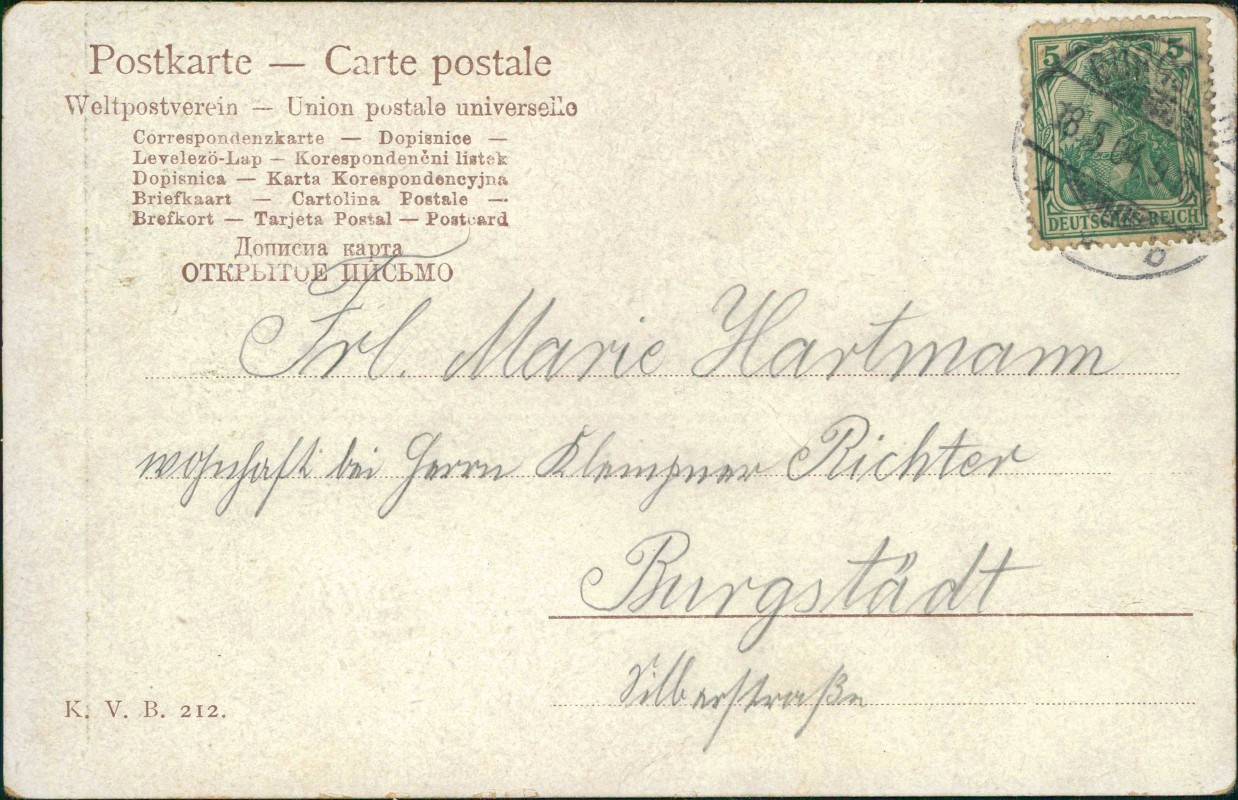 Postkarte — Carte postale
Weltpostverein — Union postale universelle
Correspondenzkarte — Dopisnice —
Levelezö-Lap — Korespondenčni listek
Dopisnica — Karta Korespondencyjna
Briefkaart — Cartolina Postale —
Brefkort — Tarjeta Postal — Postcard
Дописна карта
ОТКРЫТОЕ ПИСЬМО
5 5
DEUTSCHES REICH
18 5 04
b
Frl. Marie Hartmann
wohnhaft bei Herrn Klempner Richter
Burgstädt
Silberstraße
K. V. B. 212.